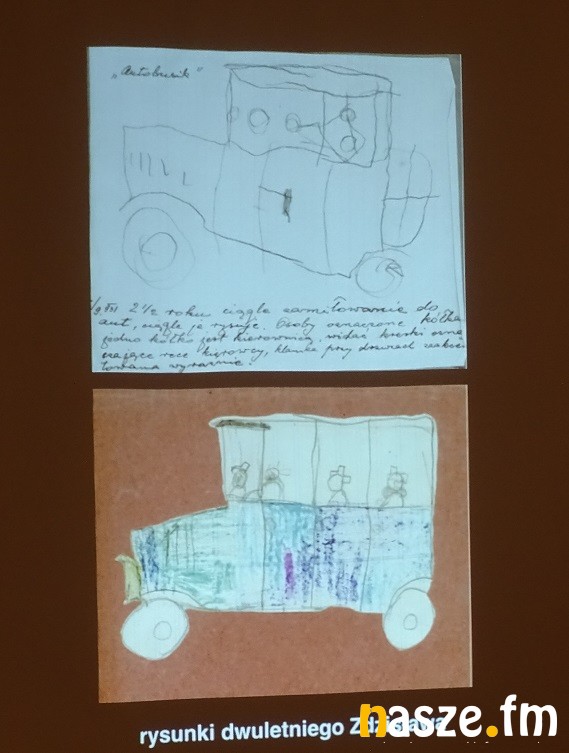 „Autobusik"
2½ roku ciągle zamiłowanie do
aut, ciągle je rysuje. Osoby oznaczone kółka
jedno kółko jest kierownicą, widać kreski ozna
czające ręce kierowcy, klamka przy drzwiach zaakcen
towana wyraźnie.
rysunki dwuletniego Zdzisława
nasze.fm